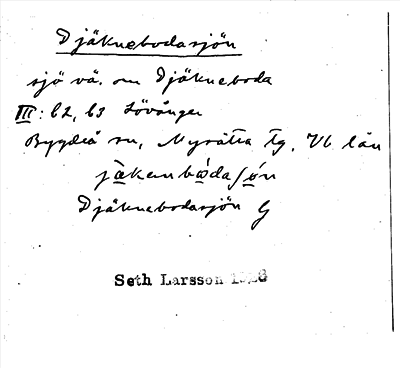 Djäknebodasjön
sjö vä. om Djäkneboda
III: b2, b3 Lövånger
Bygdeå sn, Nysätra tg, Vb län
Djäknebodasjön G
Seth Larsson 1928